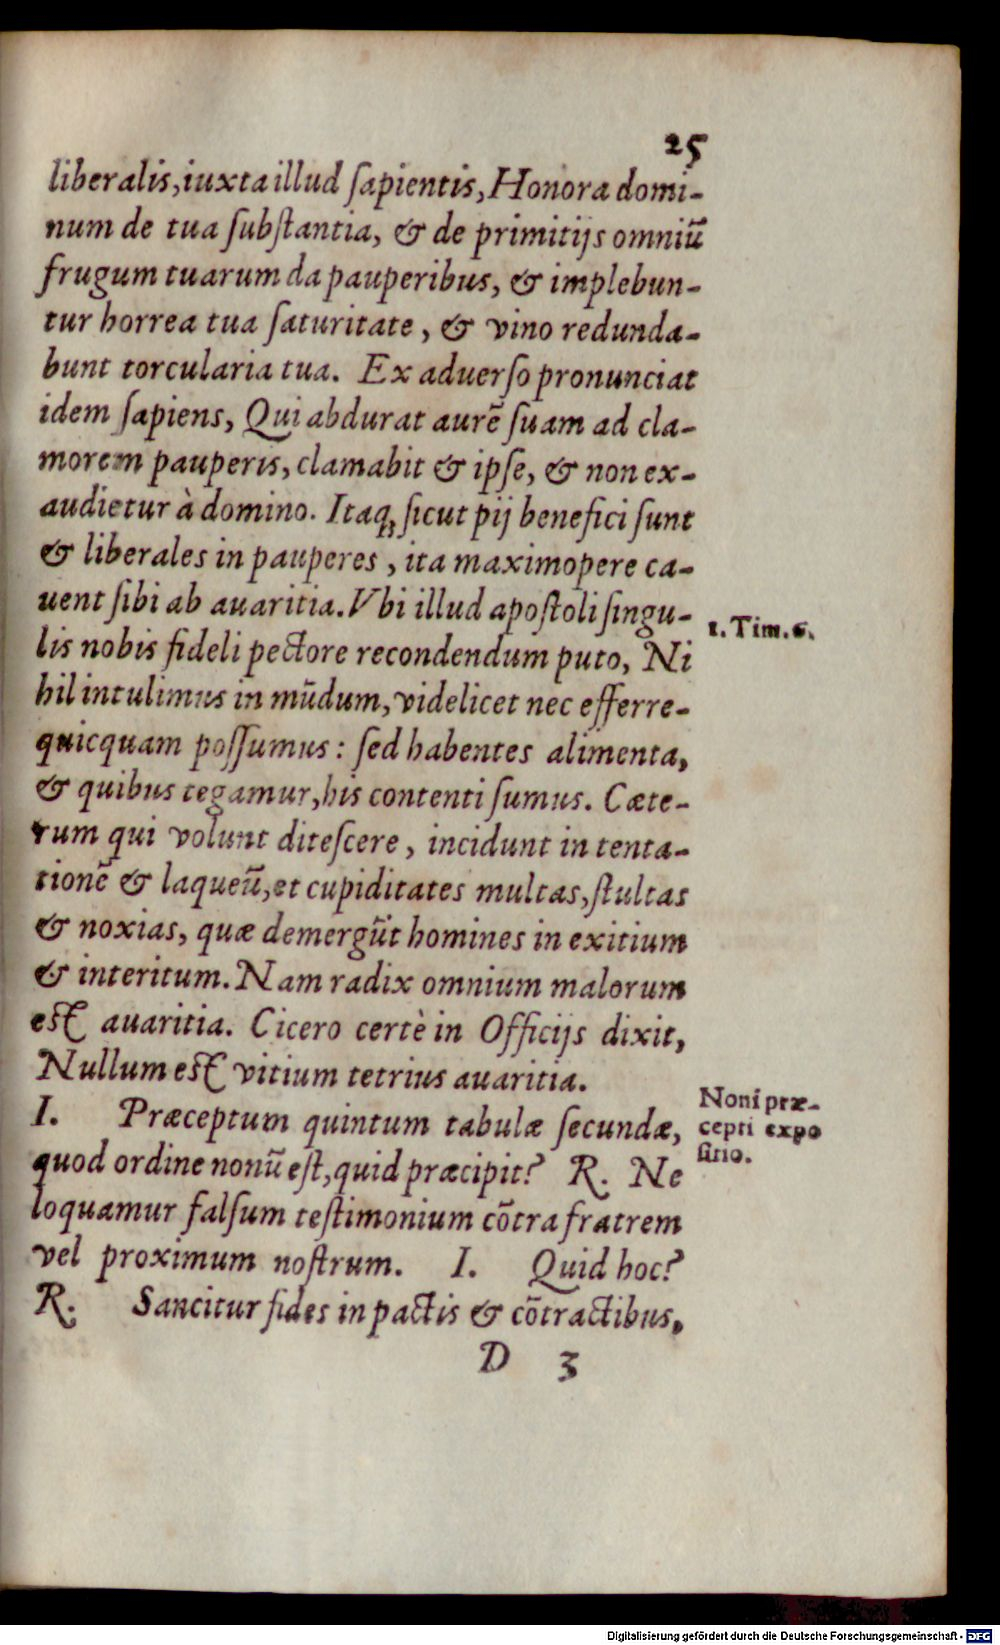 25
liberalis, iuxta illud ſapientis, Honora domi-
num de tua ſubſtantia, & de primitijs omniū
frugum tuarum da pauperibus, & implebun-
tur horrea tua ſaturitate, & vino redunda-
bunt torcularia tua. Ex aduerſo pronunciat
idem ſapiens, Qui abdurat aurē ſuam ad cla-
morem pauperis, clamabit & ipſe, & non ex-
audietur à domino. Itaq; ſicut pij benefici ſunt
& liberales in pauperes, ita maximopere ca-
uent ſibi ab auaritia. Vbi illud apoſtoli ſingu-
1. Tim. 6.
lis nobis fideli pectore recondendum puto, Ni
hil intulimus in mūdum, videlicet nec efferre-
quicquam poſſumus: ſed habentes alimenta,
& quibus tegamur, his contenti ſumus. Cæte-
rum qui volunt diteſcere, incidunt in tenta-
tionē & laqueū, et cupiditates multas, ſtultas
& noxias, quæ demergūt homines in exitium
& interitum. Nam radix omnium malorum
eſt auaritia. Cicero certè in Officijs dixit,
Nullum eſt vitium tetrius auaritia.
I. Præceptum quintum tabulæ ſecundæ,
Noni præ-
cepti expo
ſitio.
quod ordine nonū eſt, quid præcipit? R. Ne
loquamur falſum teſtimonium cōtra fratrem
vel proximum noſtrum. I. Quid hoc?
R. Sancitur fides in pactis & cōtractibus,
D 3
Digitalisierung gefördert durch die Deutsche Forschungsgemeinschaft - DFG